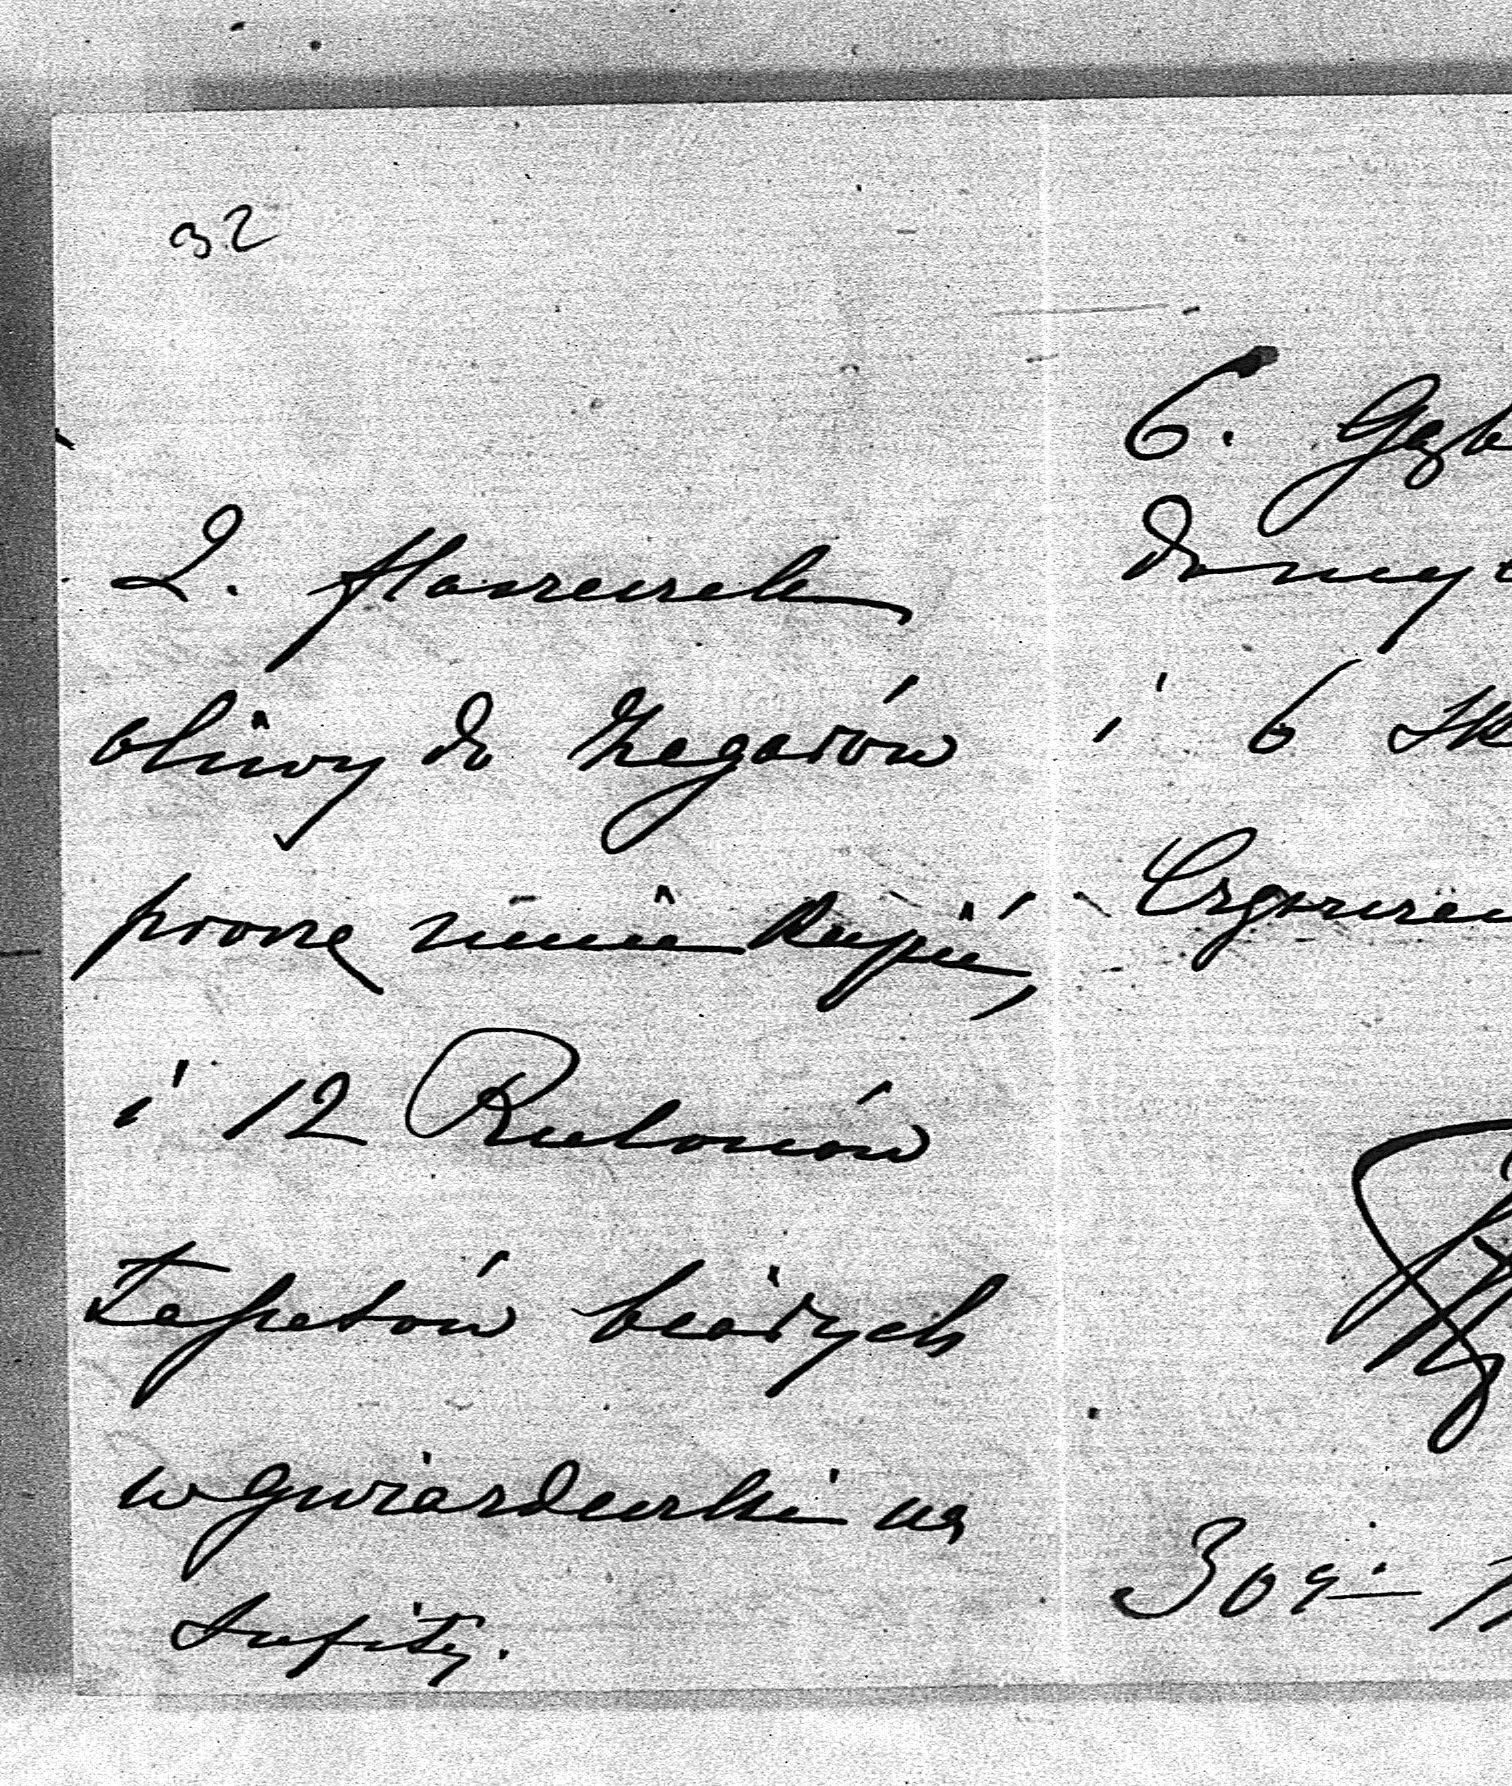 32
2. flaszeczek
oliwy do Zegarów
proszę umie kupić,
i 12 Rulonów
tapetów białych
w gwiazdeczki na
Sufity.
6. Gąb
do my
i 6 sk